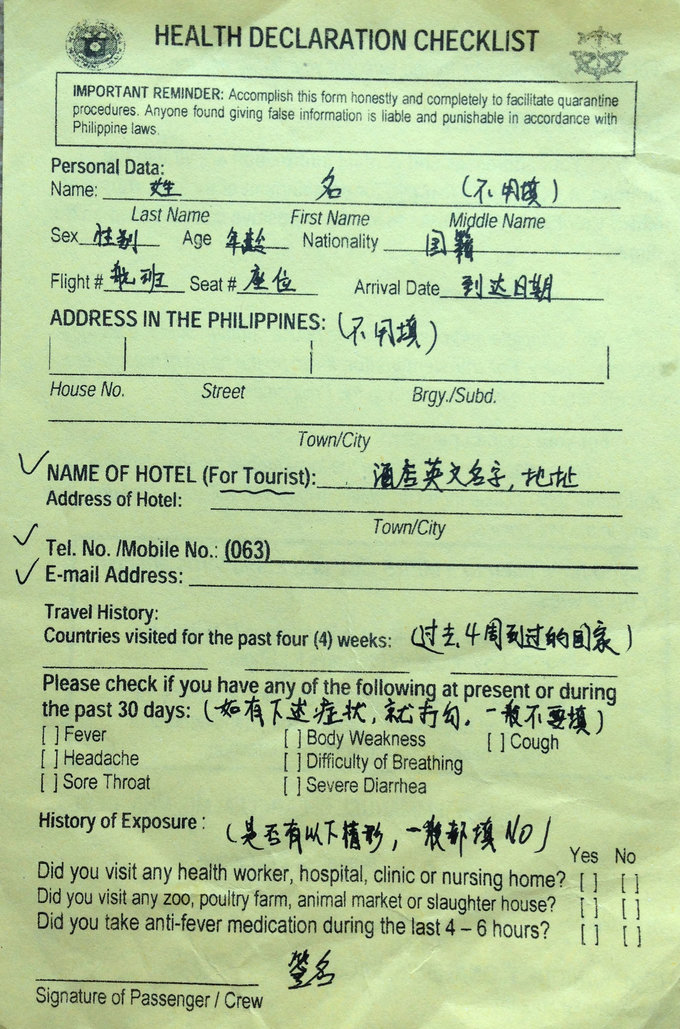 HEALTH DECLARATION CHECKLIST
IMPORTANT REMINDER: Accomplish this form honestly and completely to facilitate quarantine
procedures. Anyone found giving false information is liable and punishable in accordance with
Philippine laws.
Personal Data:
Name: 姓 名 (不用填)
Last Name First Name Middle Name
Sex 性别 Age 年龄 Nationality 国籍
Flight # 航班 Seat # 座位 Arrival Date 到达日期
ADDRESS IN THE PHILIPPINES: (不用填)
House No. Street Brgy./Subd.
Town/City
✓ NAME OF HOTEL (For Tourist): 酒店英文名字,地址
Address of Hotel:
Town/City
✓ Tel. No. /Mobile No.: (063)
✓ E-mail Address:
Travel History:
Countries visited for the past four (4) weeks: (过去4周到过的国家)
Please check if you have any of the following at present or during
the past 30 days: (如有下述症状,就打勾,一般不要填)
[ ] Fever [ ] Body Weakness [ ] Cough
[ ] Headache [ ] Difficulty of Breathing
[ ] Sore Throat [ ] Severe Diarrhea
History of Exposure : (是否有以下情形,一般都填NO)
Yes No
Did you visit any health worker, hospital, clinic or nursing home? [ ] [ ]
Did you visit any zoo, poultry farm, animal market or slaughter house? [ ] [ ]
Did you take anti-fever medication during the last 4 – 6 hours? [ ] [ ]
签名
Signature of Passenger / Crew